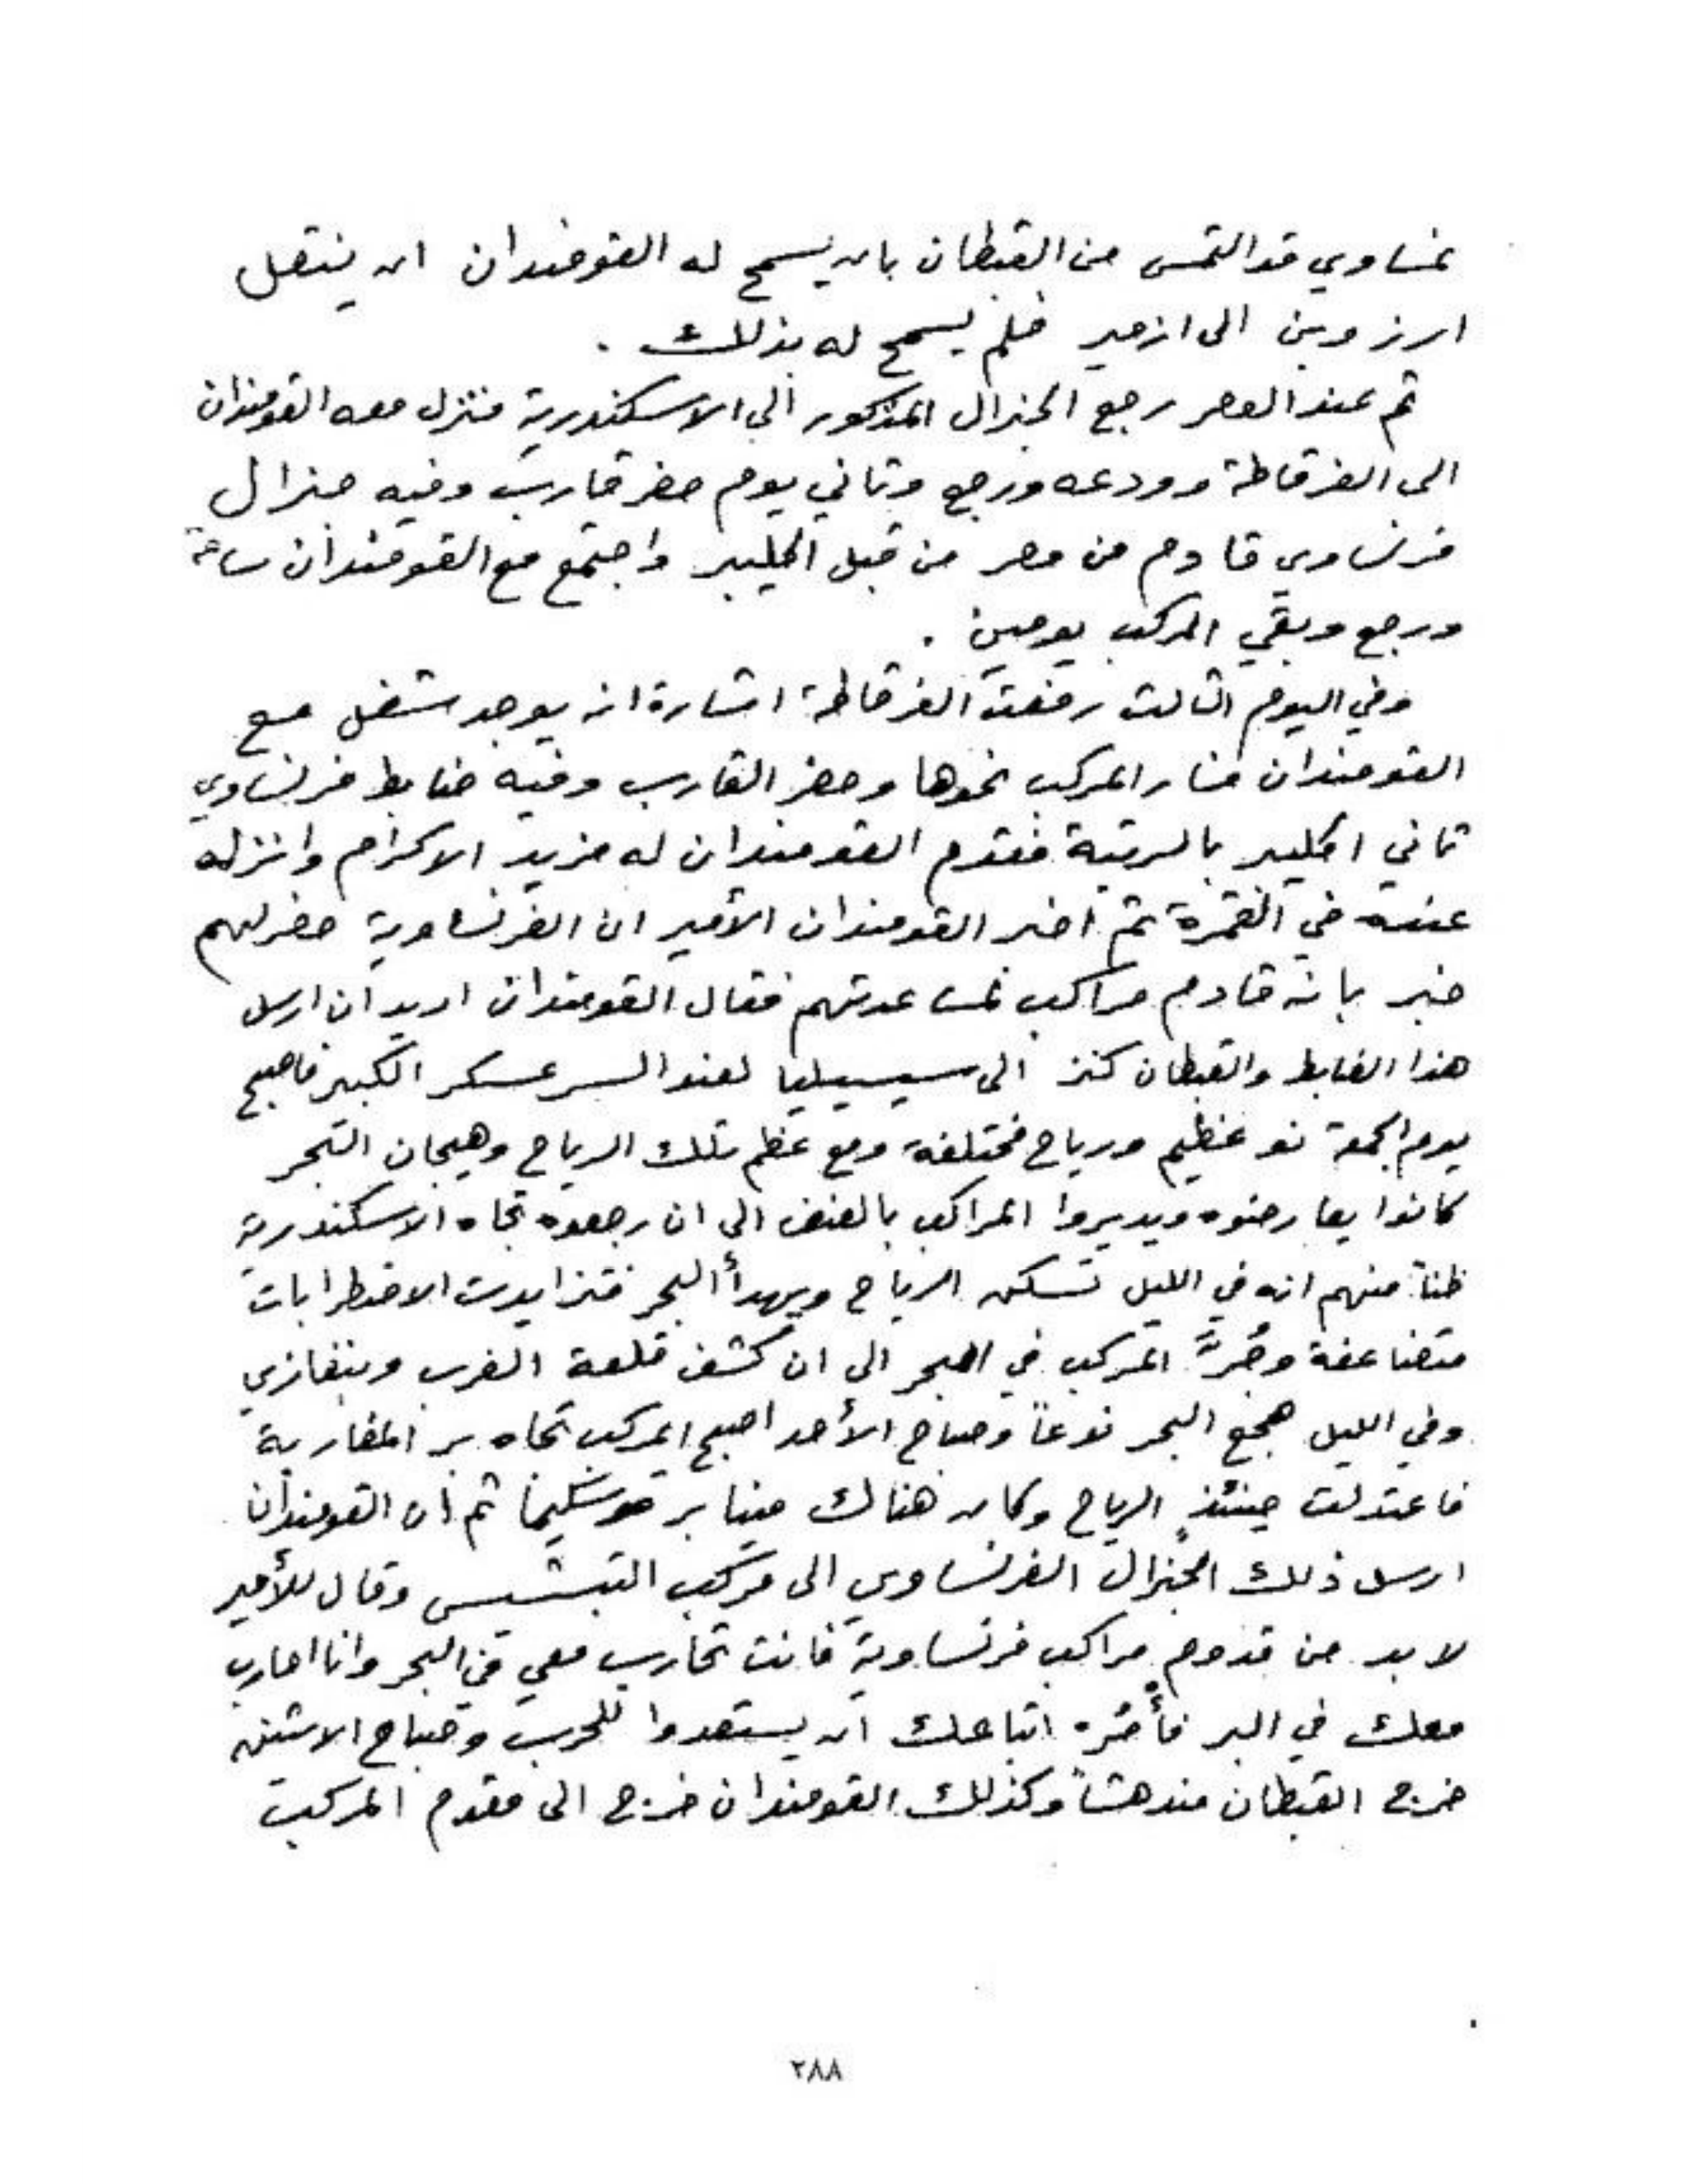 نمساوي قد التمس من القبطان بان يسمح له القومندان ان ينتقل
الى ازمير فلم يسمح له بذلك .
ثم عند العصر رجع الجنرال المذكور الى الاسكندرية فنزل معه القومندان
الى الفرقاطة وودعه ورجع وثاني يوم حضر قارب وفيه جنرال
فرنساوي قادم من مصر من قبل اكليبر واجتمع مع القومندان ساعة
ورجع وبقي المركب يومين .
وفي اليوم الثالث رفعت الفرقاطة اشارة انه يوجد شغل مع
القومندان فسار المركب نحوها وحضر القارب وفيه ضابط فرنساوي
ثاني اكليبر بالرتبة فقدم القومندان له مزيد الاكرام وانزله
عنده في القمرة ثم اخبر القومندان الأمير ان الفرنساوية حضر لهم
خبر بانه قادم مراكب لمساعدتهم فقال القومندان اريد ان ارسل
هذا الضابط والقبطان كنز الى سيسيليا لعند السرعسكر الكبير فاصبح
يوم الجمعة نو عظيم ورياح مختلفة ومع عظم تلك الرياح وهيجان البحر
كانوا يعارضوه ويديروا المراكب بالعنف الى ان رجعوه تجاه الاسكندرية
ظناً منهم انه في الليل تسكن الرياح ويهدأ البحر فتزايدت الاضطرابات
متضاعفة وجُرَّ المركب في البحر الى ان كشف قلعة الغرب وبنغازي
وفي الليل هجع البحر نوعاً وصباح الأحد اصبح المركب تجاه بر المغاربة
فاعتدلت حينئذٍ الرياح وكان هناك مينا بر ثم ان القومندان
ارسل ذلك الجنرال الفرنساوي الى مركب وقال للأمير
لا بد من قدوم مراكب فرنساوية فانت تحارب معي في البحر وانا احارب
معك في البر فأمُره اتباعك ان يستعدوا للحرب وصباح الاثنين
خرج القبطان مندهشاً وكذلك القومندان خرج الى مقدم المركب
٢٨٨